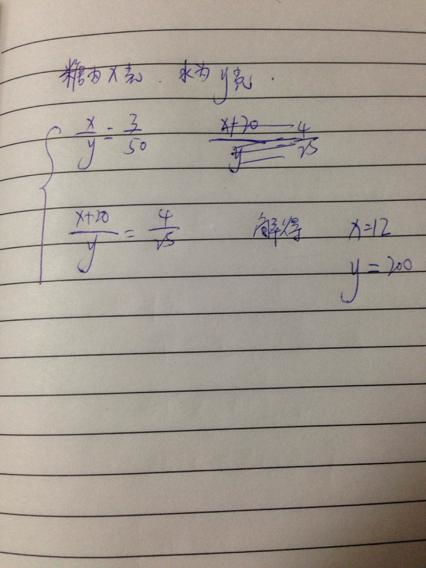 糖为x克. 水为y克.
x/y = 3/50 x+20/y 4/25
x+20/y = 4/25 解得 x=12
y=200